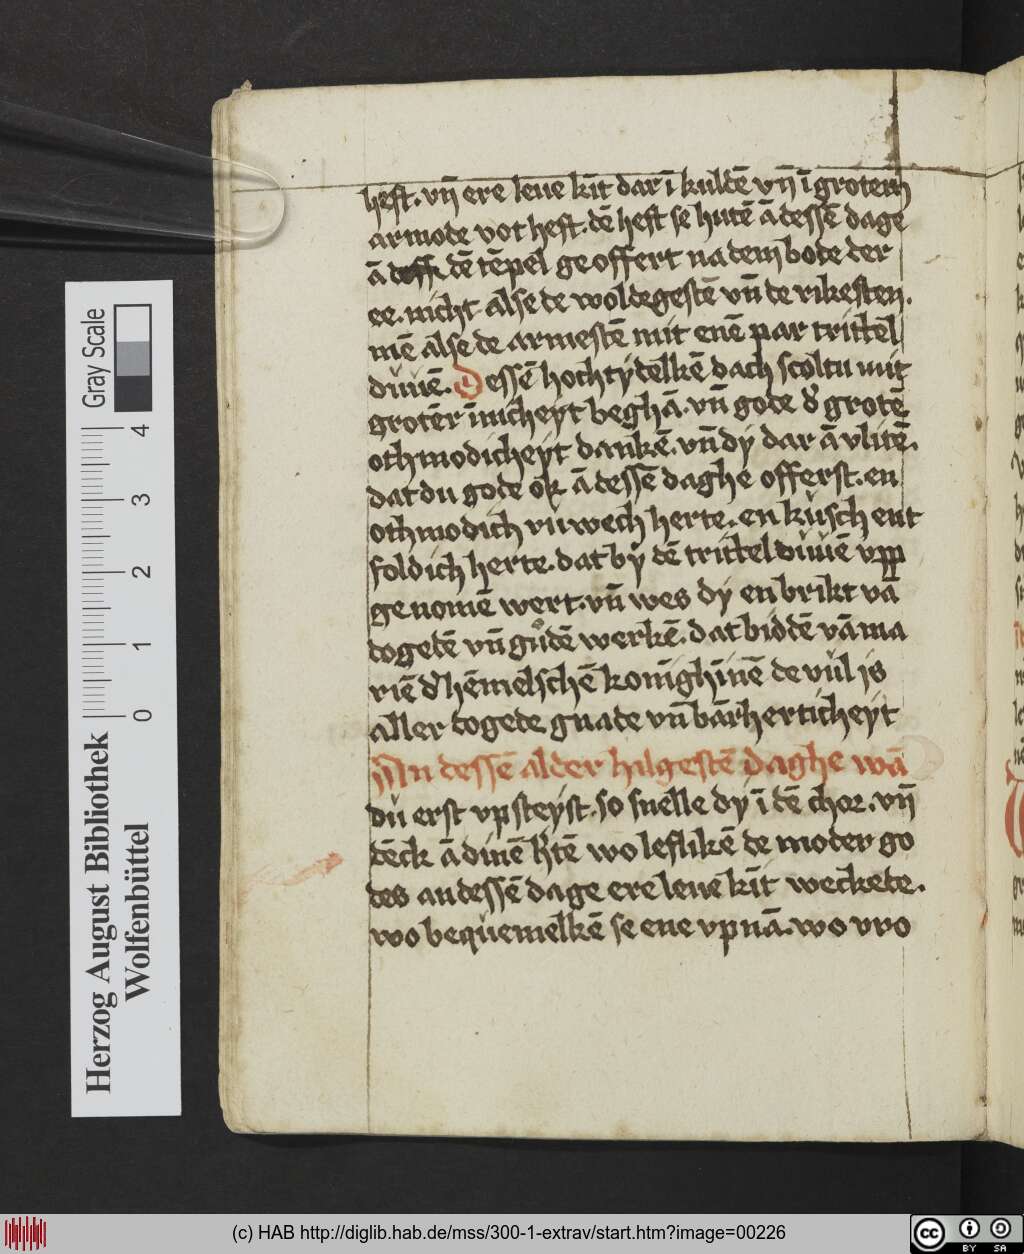 heft. vn̄ ere leue kīt dar ī kuldē vn̄ ī grotem
armode vot heft. dē heft se hutē ā dessē dage
ā dē tēpel geoffert na dem bode der
ee. nicht alse de woldegestē vn̄ de rikesten.
mē alse de armestē mit enē par trittel
duuē. Dessē hochtydelkē dach scoltu mit
grotēr īnicheyt beghā. vn̄ gode d' grotē
othmodicheyt dankē. vn̄ dy dar ā vlitē.
dat du gode ok ā dessē daghe offerst. en
othmodich vn̄ wech herte. en kusch ent
foldich herte. dat by dē trittel duuē vpp
genomē wert. vn̄ wes dy en brikt vā
dogedē vn̄ gudē werkē. dat biddē vā ma
riē d' hēmelschē konīghīnē de vul is
aller dogede gnade vn̄ bārherticheyt
In dessē alder hilgestē daghe wā
du erst vpsteyst. so snelle dy ī dē chor. vn̄
dēck ā dinē h'tē wo leflikē de moder go
des an dessē dage ere leue kīt weckede.
wo bequemelkē se ene vpnā. wo vro
Gray Scale
4 3 2 1 0
Herzog August Bibliothek
Wolfenbüttel
(c) HAB http://diglib.hab.de/mss/300-1-extrav/start.htm?image=00226
cc BY SA